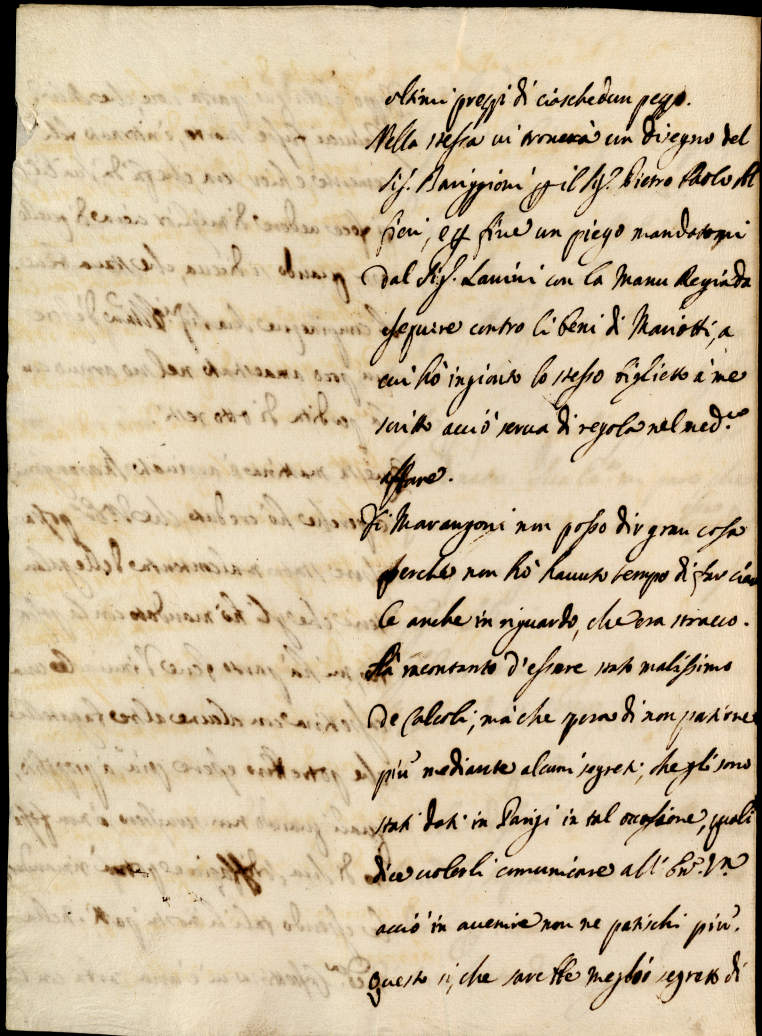 ultimi prezzi di ciaschedun pezzo.
Nella stessa vi troverà un disegno del
Sig.r Barigioni p il Sig.r Pietro Paolo Al
fieri, e p fine un piego mandatomi
dal Sig.r Lavini con la Manu Regia da
eseguire contro li beni di Mariotti, a
cui hò ingionto lo stesso biglietto à me
scritto acciò serva di regola nel med.mo
affare.
Di Marangoni non posso dir gran cosa
perche non hò havuto tempo di far
le anche in riguardo, che era stracco.
Hà racontanto d'essere stato malissimo
de Calcoli, mà che spera di non patirne
più mediante alcuni segreti, che gli sono
stati dati in Parigi in tal occasione, quali
dice volerli comunicare all'
acciò in avenire non ne patischi più.
Questo si, che sarebbe meglio segreto di